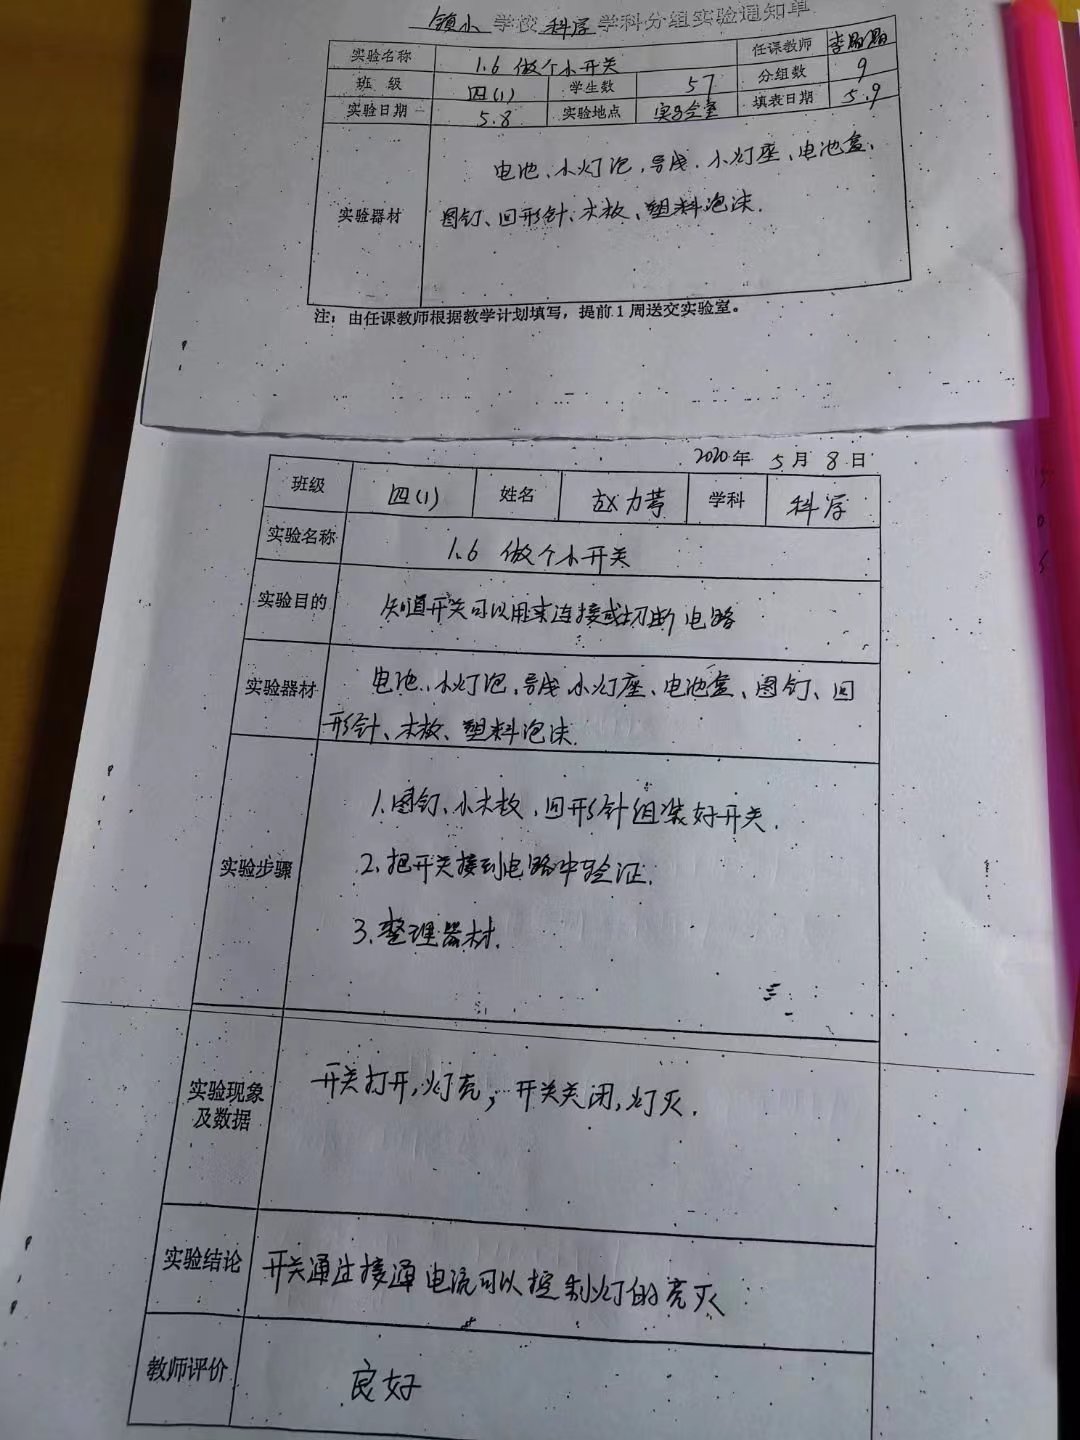 镇小 学校 科学 学科分组实验通知单
实验名称 1.6 做个小开关 任课教师
班 级 四(1) 学生数 57 分组数 9
实验日期 5.8 实验地点 实验室 填表日期 5.9
实验器材 电池、小灯泡、导线、小灯座、电池盒、
图钉、回形针、木板、塑料泡沫.
注：由任课教师根据教学计划填写，提前1周送交实验室。
2020年 5月 8日
班级 四(1) 姓名 学科 科学
实验名称 1.6 做个小开关
实验目的 知道开关可以用来连接或切断电路
实验器材 电池、小灯泡、导线、小灯座、电池盒、图钉、回
形针、木板、塑料泡沫.
实验步骤 1.图钉、小木板、回形针组装好开关.
2.把开关接到电路中验证.
3.整理器材.
实验现象及数据 开关打开,灯亮;开关关闭,灯灭.
实验结论 开关通过接通电流可以控制灯的亮灭
教师评价 良好